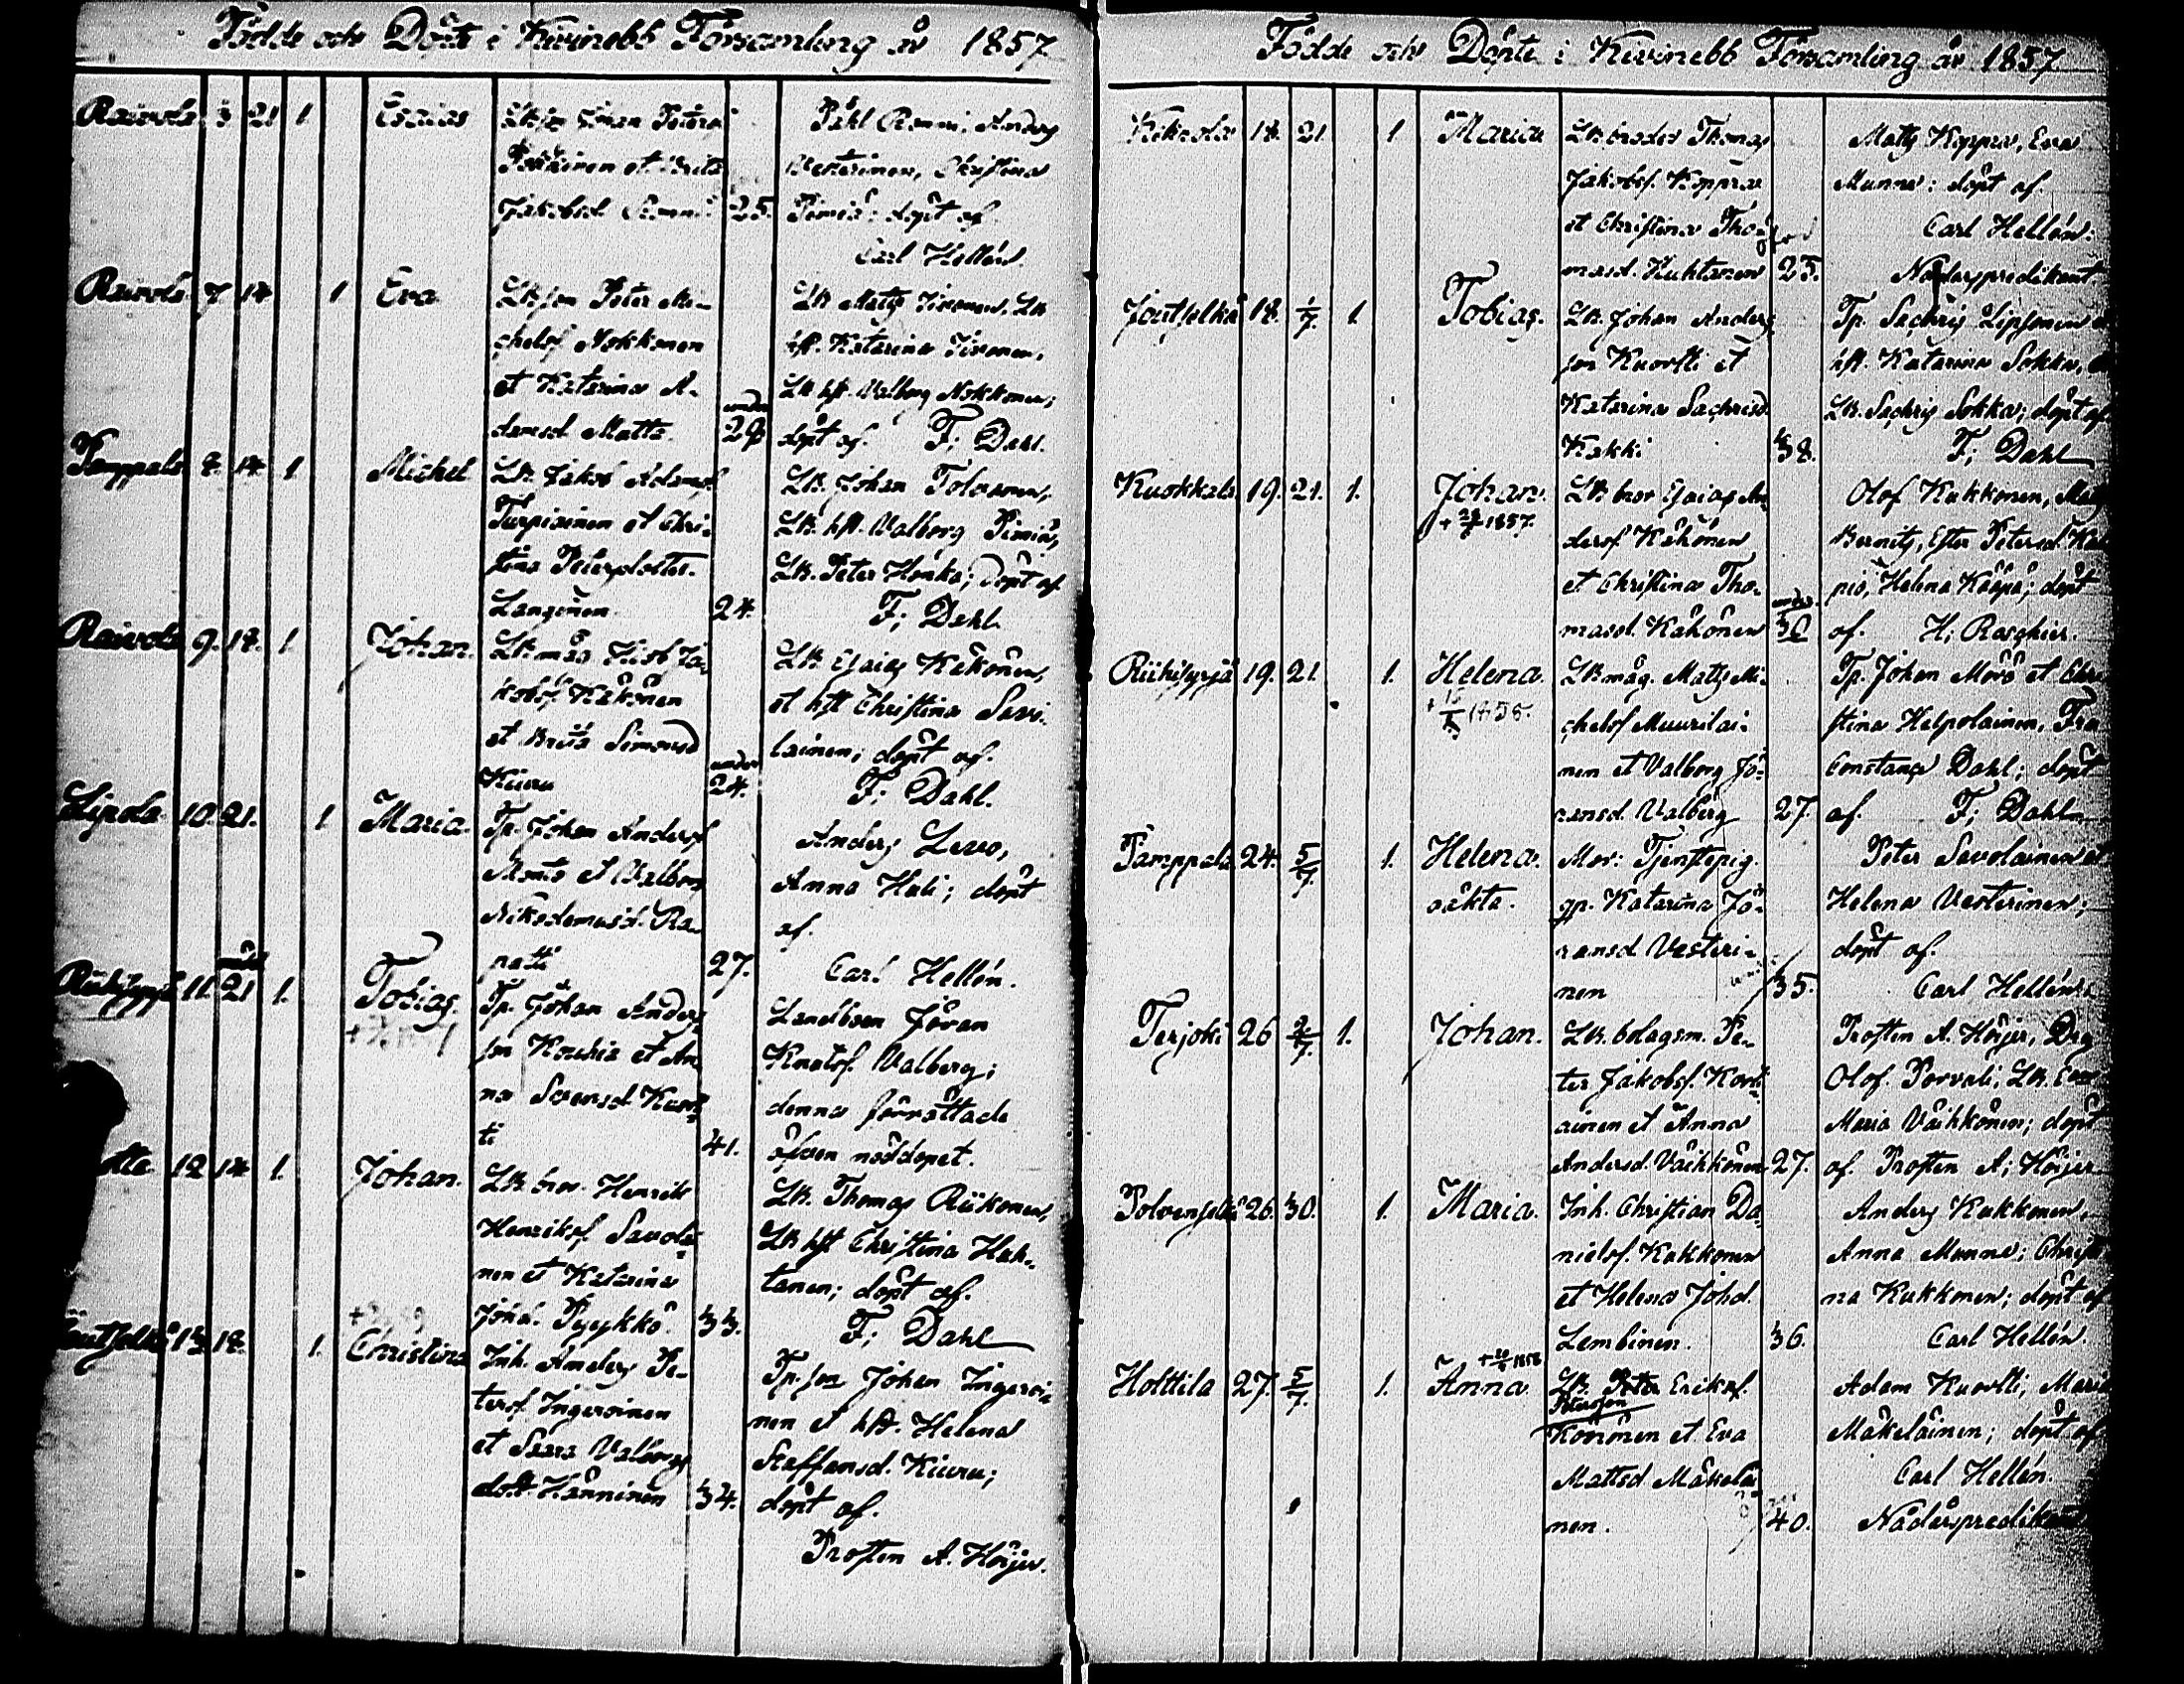 Födde och Döpte i Kivinebb Församling år 1857
Raivola 3 21 1 Esaias Lb. son Simon Peters
Pokkinen et Brita
Jakobsd. 25.
Påhl Remi, Anders
Vesterinen, Christina
Pimiä: döpt af
Carl Hellén.
Raivola 7 14 1 Eva Lb. son Peter Mi-
chelsf. Nokkonen
et Katarina A-
damsd. Matts. under 28
Lb. Matts Jironen, Lb
hst. Katarina Jironen,
Lb. hst. Valborg Nokkonen;
döpt af. F; Dahl.
Pamppala 8. 14. 1 Michel Lb. Jakob Adamsf.
Turpiainen et Chri-
stina Petersdotter
Langinen 24.
Lb. Johan Tolvanen,
Lb. hst. Valborg Pimiä,
Lb. Peter Honka; döpt af
F; Dahl.
Raivola 9. 18. 1. Johan. Lb. måg Jisob Ja-
kobsf. Kähönen
et Brita Simonsd
Kiuru under 24.
Lb. Esaias Kähönen,
et hst Christina Savo-
lainen; döpt af.
F; Dahl.
Lipola 10. 21. 1 Maria. Tp. Johan Andersf
et Valborg
Nikodemusd. Ra-
patti 27.
Anders Levo,
Anna Huli; döpt
af.
Carl Hellén.
Riihisyrjä 11. 21 1. Tobias. Tp. Johan Anders-
son Kouhia et An-
na Svensd. Kuort-
ti 41.
Landbsen Jöran
Knutsf. Valberg;
denna förrättade
äfven nöddopet.
12 14 1. Johan. Lb. bror. Henrik
Henriksf. Savolai-
nen et Katarina
Johd. Pyykkö. 33.
Lb. Thomas Riikonen,
Lb hst Christina Huh-
tanen; döpt af.
F; Dahl
Joutselkä 13. 18. 1. Christina Inh. Anders Pe-
tersf. Ingervinen
et Saara Valborgs
dott. Hänninen 34.
Tp. son Johan Ingervi-
nen et hst. Helena
Staffansd. Kiuru;
döpt af.
Prosten A. Höijer.
Födde och Döpte i Kivinebb Församling år 1857
Kekrola 18. 21. 1 Maria Lb. broder Thomas
Jakobsf. Koppra
et Christina Tho-
masd. Huhtanen 23.
Matts Koppra, Eva
Munne: döpt af.
Carl Hellén:
Nådårspredikant.
Joutselkä 18. 1/7. 1. Tobias. Lb. Johan Anders-
son Kuortti et
Katarina Sachrisd.
Kakki 38.
Tp. Sachris Lipsonen
hst. Katarina Sokka,
Lb. Sachris Sokka; döpt af
F; Dahl
Kuokkala 19. 21. 1. Johan. Lb bror Esaias An-
+ 28 1857.
dersf. Kähönen
et Christina Tho-
masd. Kähönen under 30
Olof Kukkonen, Matts
Bernits, Ester Petersd.
Helena Kääpä; döpt
af. H; Raschier.
Riihisyrjä 19. 21. 1. Helena. Lb måg. Matts Mi-
chelsf Muurilai-
nen et Valborg Jö-
ransd. Valberg 27.
Tp. Johan Mörö et Chri
stina Helpolainen, Fru
Constance Dahl; döpt
af. F; Dahl
Pamppala 24. 5/7. 1. Helena. Mor: Tjenstepig.
oäkta. gp. Katarina Jö-
ransd Vesteri-
nen 35.
Peter Savolainen et
Helena Vesterinen;
döpt af.
Carl Hellén.
Terjoki 26 2/7. 1. Johan. Lb. bolagsm. Pe-
ter Jakobsf. Korti-
ainen et Anna
Andersd. Väihkönen 27.
Prosten A. Höijer, Drg
Olof. Porvali, Lb. Enk
Maria Väihkönen; döpt
af. Prosten A; Höijer
Polvenselkä 26. 30. 1. Maria. Inh. Christian Da-
nielsf. Kukkonen
et Helena Johd.
Lembinen. 36.
Anders Kukkonen,
Anna Munne; Christi
na Kukkonen; döpt af
Carl Hellén.
Holttila 27. 5/7. 1. Anna Lb. Peter Eriksf.
Petersson
Könönen et Eva
Mattsd Mäkeläi-
nen. 40.
Adam Kuortti, Maria
Mäkeläinen; döpt af
Carl Hellén.
Nådårspredikant